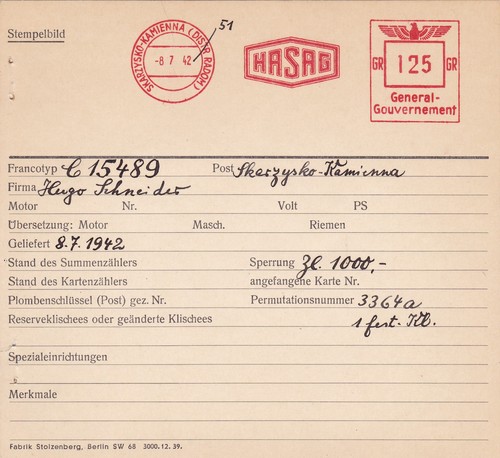 Stempelbild
SKARZYSKO-KAMIENNA (DISTR. RADOM)
-8 7 42
51
HASAG
GR 125 GR
General-
Gouvernement
Francotyp C 15489 Post Skarzysko-Kamienna
Firma Hugo Schneider
Motor Nr. Volt PS
Übersetzung: Motor Masch. Riemen
Geliefert 8.7.1942
Stand des Summenzählers Sperrung Zl. 1000,-
Stand des Kartenzählers angefangene Karte Nr.
Plombenschlüssel (Post) gez. Nr. Permutationsnummer 3364a
Reserveklischees oder geänderte Klischees 1 fest. Kl.
Spezialeinrichtungen
Merkmale
Fabrik Stolzenberg, Berlin SW 68 3000.12.39.